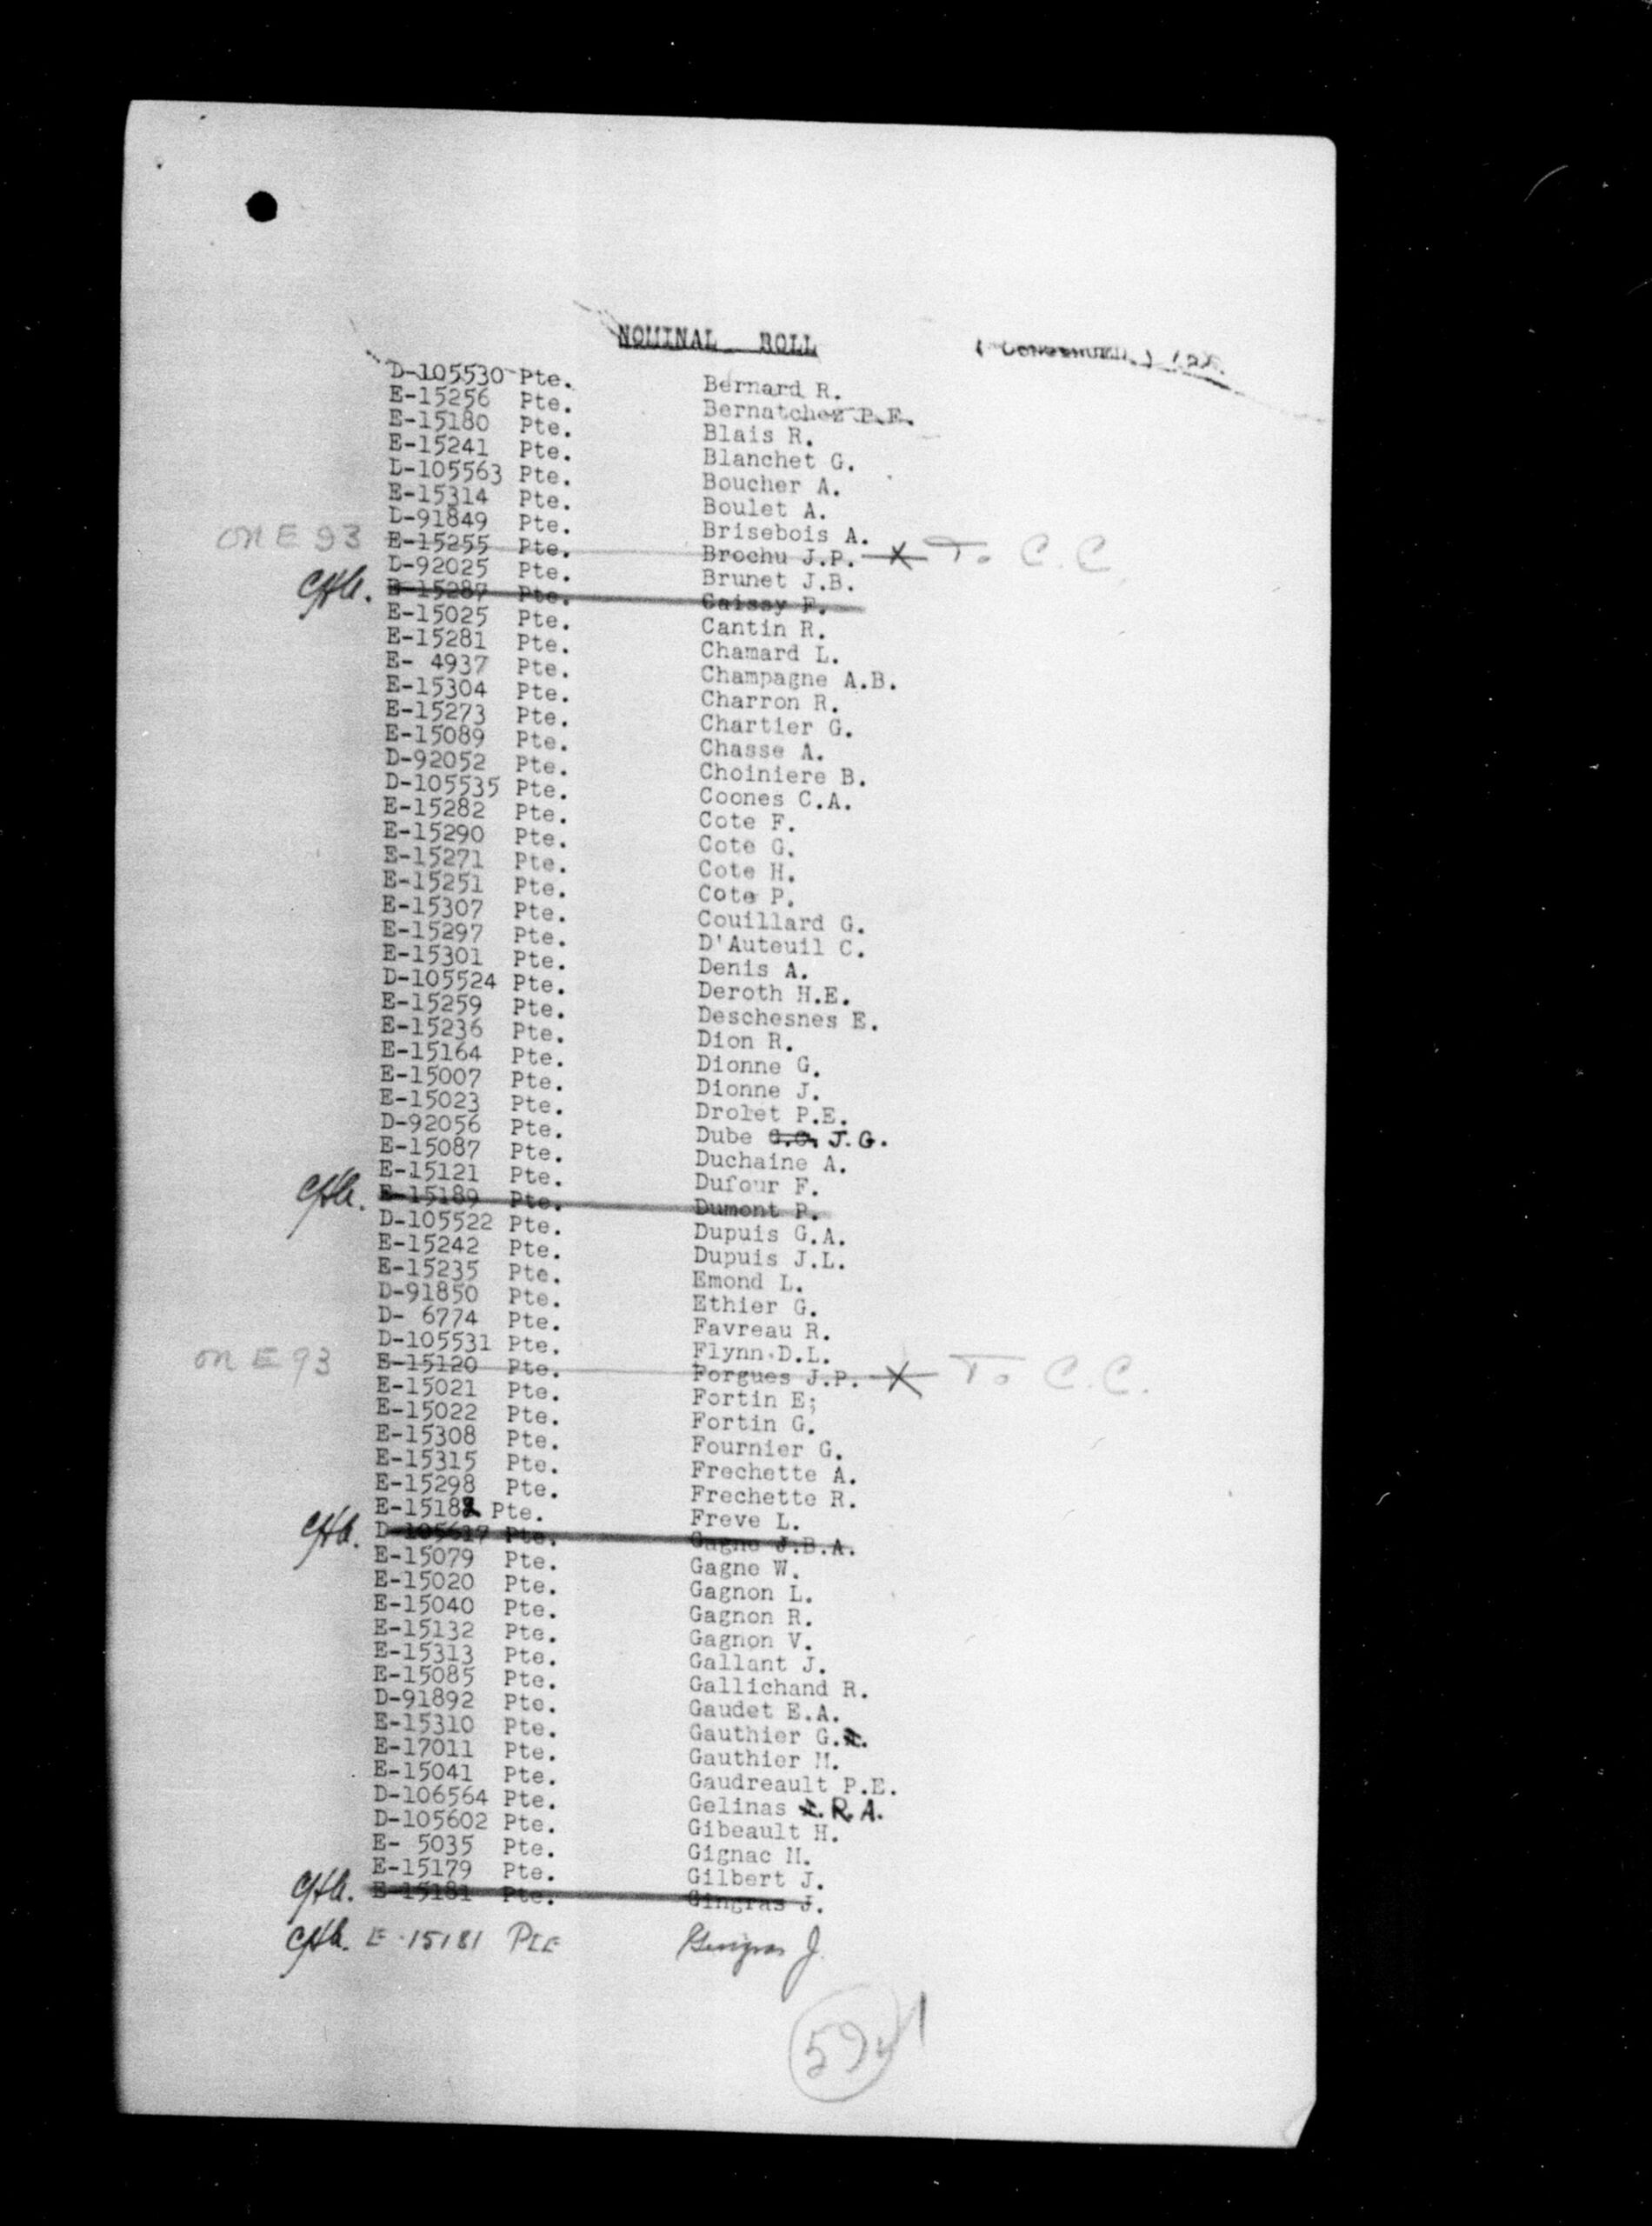 NOMINAL ROLL
D-105530 Pte. Bernard R.
E-15256 Pte. Bernatchez P.E.
E-15180 Pte. Blais R.
E-15241 Pte. Blanchet G.
D-105563 Pte. Boucher A.
E-15314 Pte. Boulet A.
D-91849 Pte. Brisebois A.
on E 93 E-15255 Pte. Brochu J.P. X To C.C.
D-92025 Pte. Brunet J.B.
E-15287 Pte. Caissy F.
E-15025 Pte. Cantin R.
E-15281 Pte. Chamard L.
E- 4937 Pte. Champagne A.B.
E-15304 Pte. Charron R.
E-15273 Pte. Chartier G.
E-15089 Pte. Chasse A.
D-92052 Pte. Choiniere B.
D-105535 Pte. Coones C.A.
E-15282 Pte. Cote F.
E-15290 Pte. Cote G.
E-15271 Pte. Cote H.
E-15251 Pte. Cote P.
E-15307 Pte. Couillard G.
E-15297 Pte. D'Auteuil C.
E-15301 Pte. Denis A.
D-105524 Pte. Deroth H.E.
E-15259 Pte. Deschesnes E.
E-15236 Pte. Dion R.
E-15164 Pte. Dionne G.
E-15007 Pte. Dionne J.
E-15023 Pte. Drolet P.E.
D-92056 Pte. Dube J.G.
E-15087 Pte. Duchaine A.
E-15121 Pte. Dufour F.
E-15189 Pte. Dumont P.
D-105522 Pte. Dupuis G.A.
E-15242 Pte. Dupuis J.L.
E-15235 Pte. Emond L.
D-91850 Pte. Ethier G.
D- 6774 Pte. Favreau R.
D-105531 Pte. Flynn D.L.
on E 93 E-15120 Pte. Forgues J.P. X To C.C.
E-15021 Pte. Fortin E;
E-15022 Pte. Fortin G.
E-15308 Pte. Fournier G.
E-15315 Pte. Frechette A.
E-15298 Pte. Frechette R.
E-15182 Pte. Freve L.
D-105617 Pte. Gagne J.B.A.
E-15079 Pte. Gagne W.
E-15020 Pte. Gagnon L.
E-15040 Pte. Gagnon R.
E-15132 Pte. Gagnon V.
E-15313 Pte. Gallant J.
E-15085 Pte. Gallichand R.
D-91892 Pte. Gaudet E.A.
E-15310 Pte. Gauthier G.
E-17011 Pte. Gauthier M.
E-15041 Pte. Gaudreault P.E.
D-106564 Pte. Gelinas R.A.
D-105602 Pte. Gibeault H.
E- 5035 Pte. Gignac M.
E-15179 Pte. Gilbert J.
E-15181 Pte. Gingras J.
E-15181 PTE Gingras J.